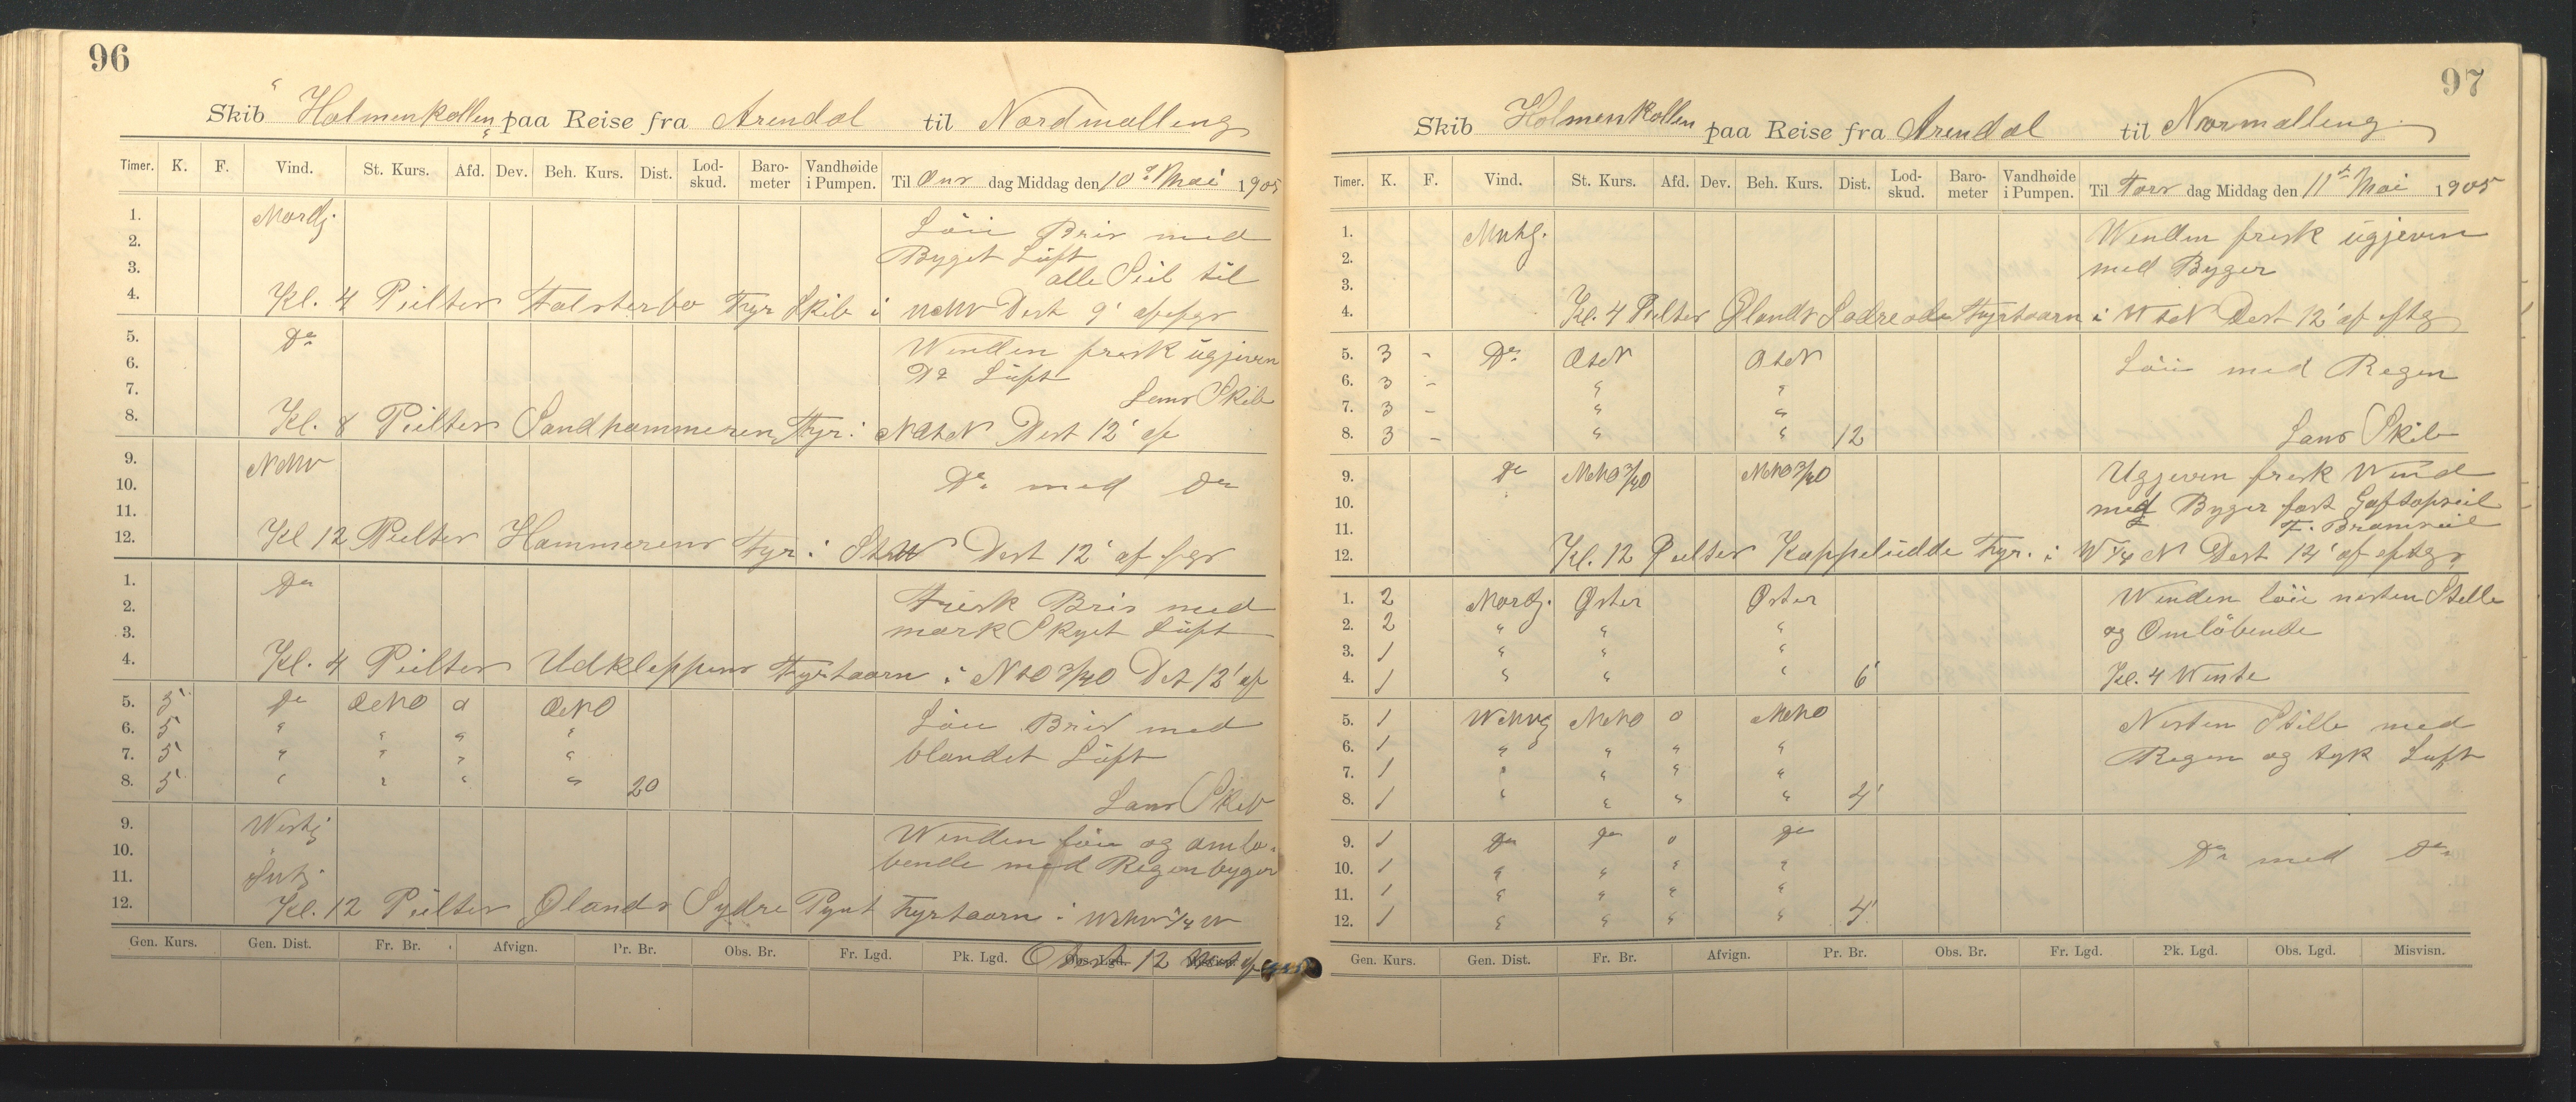 96
Skib "Holmenkollen" paa Reise fra Arendal til Nordmalling
Timer. K. F. Vind. St. Kurs. Afd. Dev. Beh. Kurs. Dist. Lod-skud. Baro-meter Vandhøide i Pumpen. Til Ons dag Middag den 10de Mai 1905
1. Nordlg. Löie Bris med
2. Byget Luft
3. alle Seil til
4. Kl. 4 Peilter Falsterbo Fyr Skib i Dest 9'
5. Do Winden frisk ügjeven
6. Do Lüft
7. Lens Skib
8. Kl. 8 Peilter Sandhammeren Fyr i NOtN Dest 12' af
9. NNW
10. Do med Do
11.
12. Kl 12 Peilter Hammerens Fyr i Dest 12' af
1. Do Frisk Bris med
2. mørk Skyet Lüft
3.
4. Kl. 4 Peilter Udkleppens Fyrtaarn i NtO 3/4 O Dst 12' af
5. 5 Do ONO o ONO Löie Bris med
6. 5 " " " " blandet Lüft
7. 5 " " " "
8. 5 " " " " 20 Lens Skib
9. Westlg. Winden löie og omlö-
10. bende med Regenbyger
11. Sydlg.
12. Kl. 12 Peilter Ølands Sydre Pynt Fyrtaarn i WNW 1/4 W
Gen. Kurs. Gen. Dist. Fr. Br. Afvign. Pr. Br. Obs. Br. Fr. Lgd. Pk. Lgd. Obs. Lgd. Dest 12
97
Skib Holmenkollen paa Reise fra Arendal til Normalling
Timer. K. F. Vind. St. Kurs. Afd. Dev. Beh. Kurs. Dist. Lod-skud. Baro-meter Vandhøide i Pumpen. Til Tors dag Middag den 11te Mai 1905
1. Winden frisk ügjeven
2. med Byger
3.
4. Kl. 4 Peilter Ølands Sødre Fyrtaarn i WtN Dest 12' af
5. 3 - Do OtN OtN Löie med Regen
6. 3 - " "
7. 3 - " "
8. 3 - " " 12 Lens Skib
9. Do NNO 3/4 O NNO 3/4 O Ugjeven frisk Wind
10. med Byger fast Gaftopseil
11. F. Bramseil
12. Kl. 12 Peilter Kappeludde Fyr. i W 1/4 N Dest 12' af
1. 2 Nordlg. Øster Øster Winden löie nesten Stille
2. 2 " " " og Omlöbende
3. 1 " " "
4. 1 " " " 6' Kl. 4 Wente
5. 1 NNO o NNO Nesten Stille med
6. 1 " " " " Regen og tyk Luft
7. 1 " " " "
8. 1 " " " " 4'
9. 1 Do Do o Do
10. 1 " " " " Do med Do
11. 1 " " " "
12. 1 " " " " 4'
Gen. Kurs. Gen. Dist. Fr. Br. Afvign. Pr. Br. Obs. Br. Fr. Lgd. Pk. Lgd. Obs. Lgd. Misvisn.